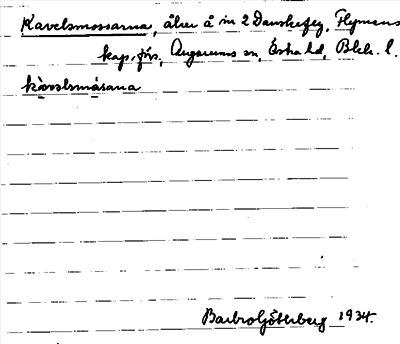 Kavelsmossarna, åker å nr 2 Danskefly, Flymens
kap. förs., Augerums sn, Östra hd, Blek. l.
kàvəlsmåsana
Barbro Götherberg 1934.